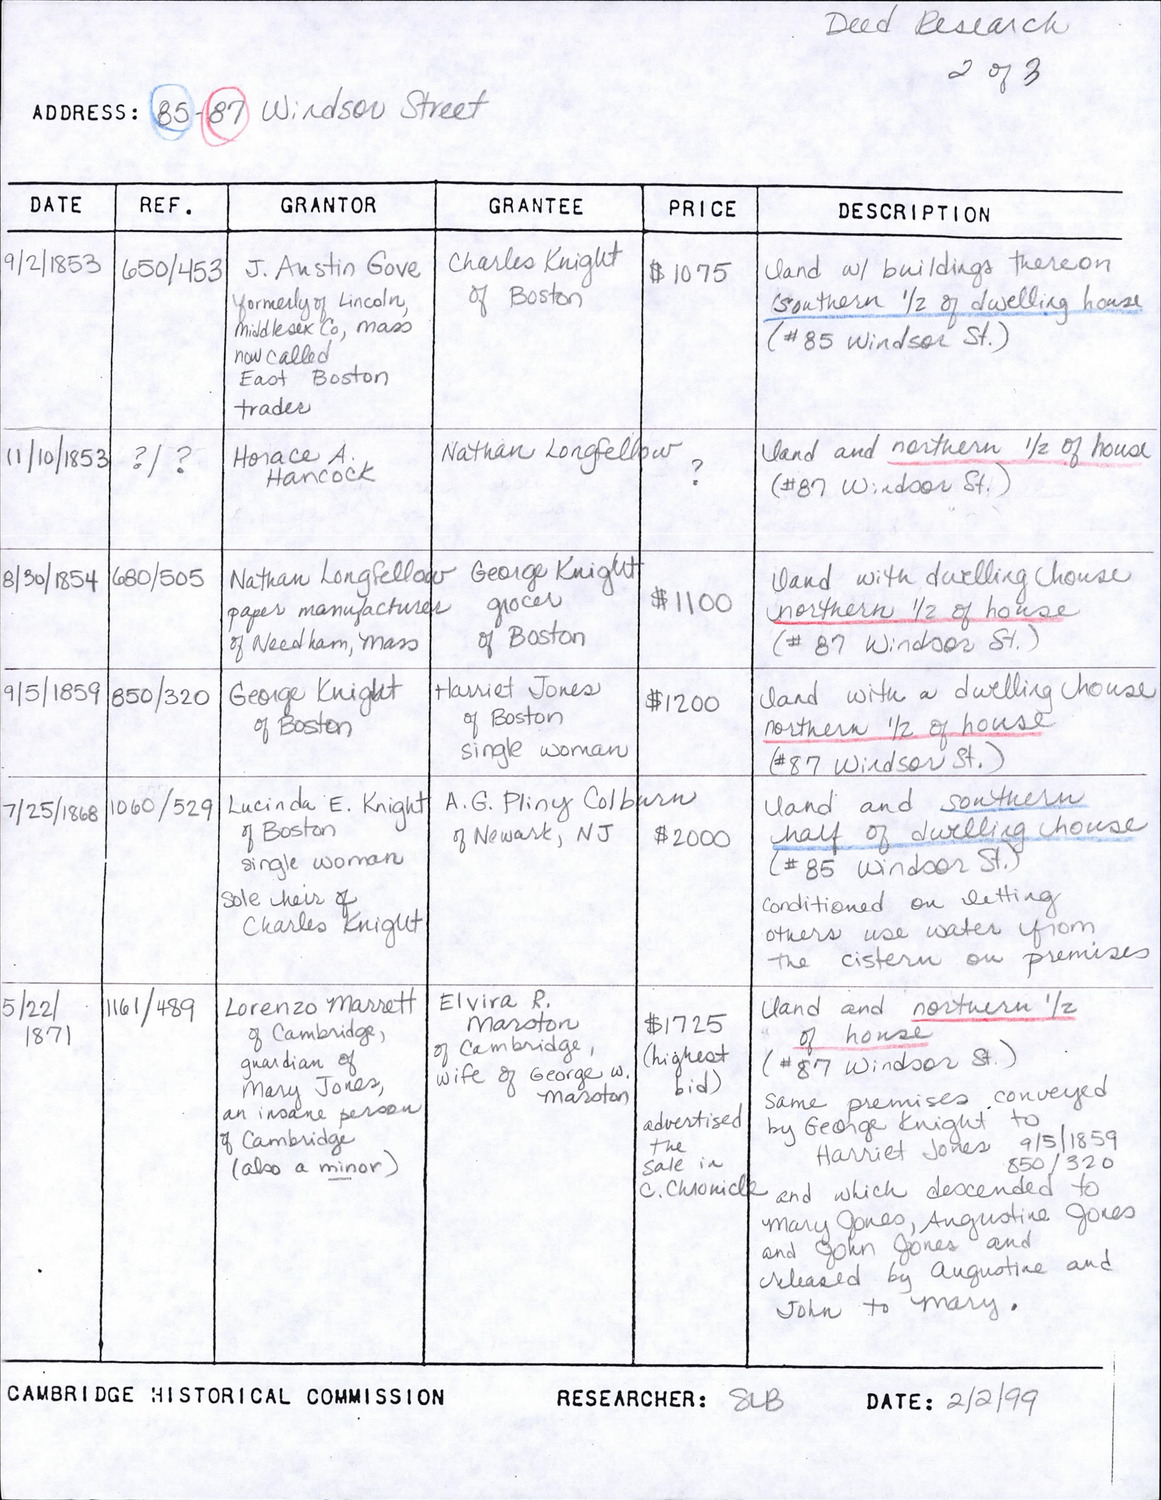 Deed Research
2 of 3
ADDRESS: 85-87 Windsor Street
DATE REF. GRANTOR GRANTEE PRICE DESCRIPTION
9/2/1853
650/453
J. Austin Gove
formerly of Lincoln,
Middlesex Co, Mass
now called
East Boston
trader
Charles Knight
of Boston
$1075
land w/ buildings thereon
southern 1/2 of dwelling house
(#85 Windsor St.)
11/10/1853
?/?
Horace A.
Hancock
Nathan Longfellow
?
land and northern 1/2 of house
(#87 Windsor St.)
8/30/1854
680/505
Nathan Longfellow
paper manufacturer
of Needham, Mass
George Knight
grocer
of Boston
$1100
land with dwelling house
northern 1/2 of house
(# 87 Windsor St.)
9/5/1859
850/320
George Knight
of Boston
Harriet Jones
of Boston
single woman
$1200
land with a dwelling house
northern 1/2 of house
(#87 Windsor St.)
7/25/1868
1060/529
Lucinda E. Knight
of Boston
single woman
sole heir of
Charles Knight
A.G. Pliny Colburn
of Newark, NJ
$2000
land and southern
half of dwelling house
(#85 Windsor St.)
conditioned on letting
others use water from
the cistern on premises
5/22/
1871
1161/489
Lorenzo Marrett
of Cambridge,
guardian of
Mary Jones,
an insane person
of Cambridge
(also a minor)
Elvira R.
Marston
of Cambridge,
wife of George W.
Marston
$1725
(highest
bid)
advertised
the
sale in
C. Chronicle
land and northern 1/2
of house
(#87 Windsor St.)
same premises conveyed
by George Knight to
Harriet Jones 9/5/1859
850/320
and which descended to
Mary Jones, Augustine Jones
and John Jones and
released by Augustine and
John to Mary.
CAMBRIDGE HISTORICAL COMMISSION RESEARCHER: SLB DATE: 2/2/99